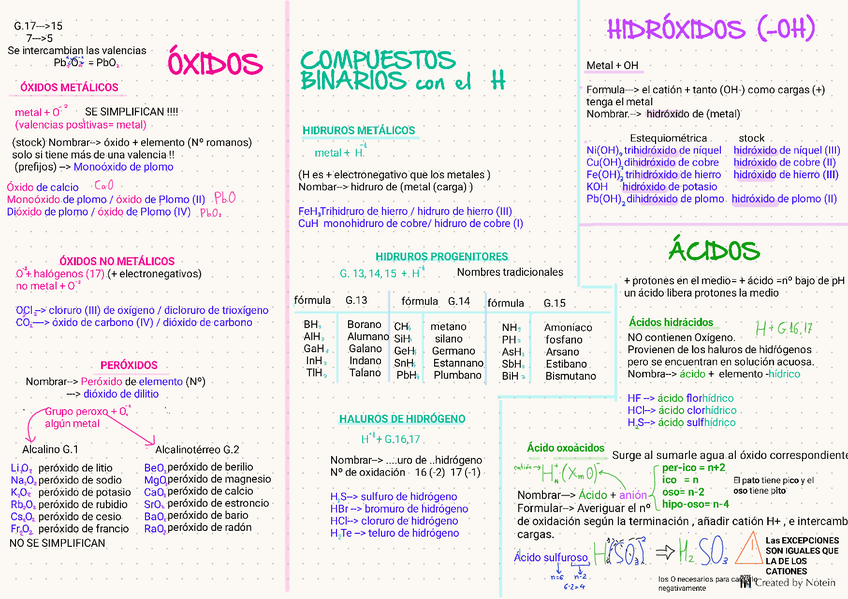 G.17--->15
7--->5
Se intercambian las valencias
Pb₂O₄ = PbO₂
ÓXIDOS
ÓXIDOS METÁLICOS
metal + O⁻² SE SIMPLIFICAN !!!!
(valencias positivas= metal)
(stock) Nombrar--> óxido + elemento (Nº romanos)
solo si tiene más de una valencia !!
(prefijos) --> Monoóxido de plomo
Óxido de calcio CaO
Monoóxido de plomo / óxido de Plomo (II) PbO
Dióxido de plomo / óxido de Plomo (IV) PbO₂
ÓXIDOS NO METÁLICOS
O⁻²+ halógenos (17) (+ electronegativos)
no metal + O⁻²
OCl₂--> cloruro (III) de oxígeno / dicloruro de trioxígeno
CO₂---> óxido de carbono (IV) / dióxido de carbono
PERÓXIDOS
Nombrar--> Peróxido de elemento (Nº)
---> dióxido de dilitio
Grupo peroxo + O₂
algún metal
Alcalino G.1
Li₂O₂ peróxido de litio
Na₂O₂ peróxido de sodio
K₂O₂ peróxido de potasio
Rb₂O₂ peróxido de rubidio
Cs₂O₂ peróxido de cesio
Fr₂O₂ peróxido de francio
NO SE SIMPLIFICAN
Alcalinotérreo G.2
BeO₂ peróxido de berilio
MgO₂ peróxido de magnesio
CaO₂ peróxido de calcio
SrO₂ peróxido de estroncio
BaO₂ peróxido de bario
RaO₂ peróxido de radón
COMPUESTOS
BINARIOS con el H
HIDRUROS METÁLICOS
metal + H⁻¹
(H es + electronegativo que los metales )
Nombar--> hidruro de (metal (carga) )
FeH₃Trihidruro de hierro / hidruro de hierro (III)
CuH monohidruro de cobre/ hidruro de cobre (I)
HIDRUROS PROGENITORES
G. 13, 14, 15 + H⁻¹ Nombres tradicionales
fórmula G.13 fórmula G.14 fórmula G.15
BH₃ Borano CH₄ metano NH₃ Amoníaco
AlH₃ Alumano SiH₄ silano PH₃ fosfano
GaH₃ Galano GeH₄ Germano AsH₃ Arsano
InH₃ Indano SnH₄ Estannano SbH₃ Estibano
TlH₃ Talano PbH₄ Plumbano BiH₃ Bismutano
HALUROS DE HIDRÓGENO
H⁺¹+ G.16,17
Nombrar--> ....uro de ..hidrógeno
Nº de oxidación 16 (-2) 17 (-1)
H₂S--> sulfuro de hidrógeno
HBr --> bromuro de hidrógeno
HCl--> cloruro de hidrógeno
H₂Te --> teluro de hidrógeno
HIDRÓXIDOS (-OH)
Metal + OH
Formula--> el catión + tanto (OH-) como cargas (+)
tenga el metal
Nombrar.--> hidróxido de (metal)
Estequiométrica stock
Ni(OH)₃ trihidróxido de níquel hidróxido de níquel (III)
Cu(OH)₂ dihidróxido de cobre hidróxido de cobre (II)
Fe(OH)₃ trihidróxido de hierro hidróxido de hierro (III)
KOH hidróxido de potasio
Pb(OH)₂ dihidróxido de plomo hidróxido de plomo (II)
ÁCIDOS
+ protones en el medio= + ácido =nº bajo de pH
un ácido libera protones la medio
Ácidos hidrácidos H + G.16,17
NO contienen Oxígeno.
Provienen de los haluros de hidrógenos
pero se encuentran en solución acuosa.
Nombra--> ácido + elemento -hídrico
HF --> ácido florhídrico
HCl--> ácido clorhídrico
H₂S--> ácido sulfhídrico
Ácido oxoácidos Surge al sumarle agua al óxido correspondiente
catión--> H⁺(XmO)⁻
per-ico = n+2
ico = n
oso= n-2
hipo-oso= n-4
El pato tiene pico y el
oso tiene pito
Nombrar--> Ácido + anión
Formular--> Averiguar el nº
de oxidación según la terminación , añadir catión H+ , e intercamb
cargas.
Ácido sulfuroso H(SO₃) ⇒ H₂ SO₃
n=6 n-2
6-2=4
Las EXCEPCIONES
SON IGUALES QUE
LA DE LOS
CATIONES
los O necesarios para
negativamente
Created by Notein